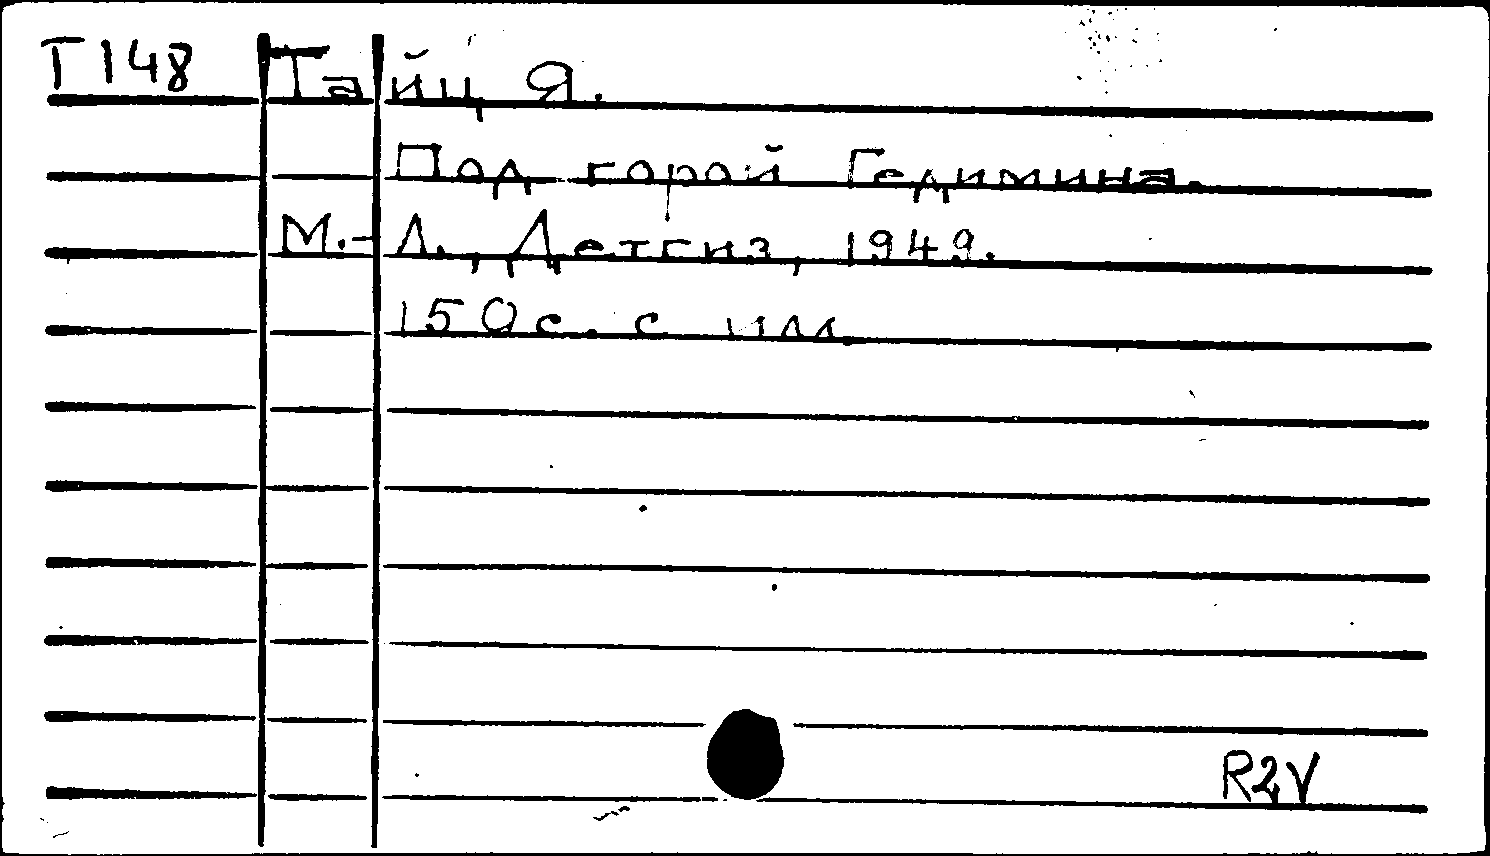 Т148 Тайц Я.
Под горой Гедимина.
М.-Л., Детгиз, 1949.
150 с. с илл.
R2V